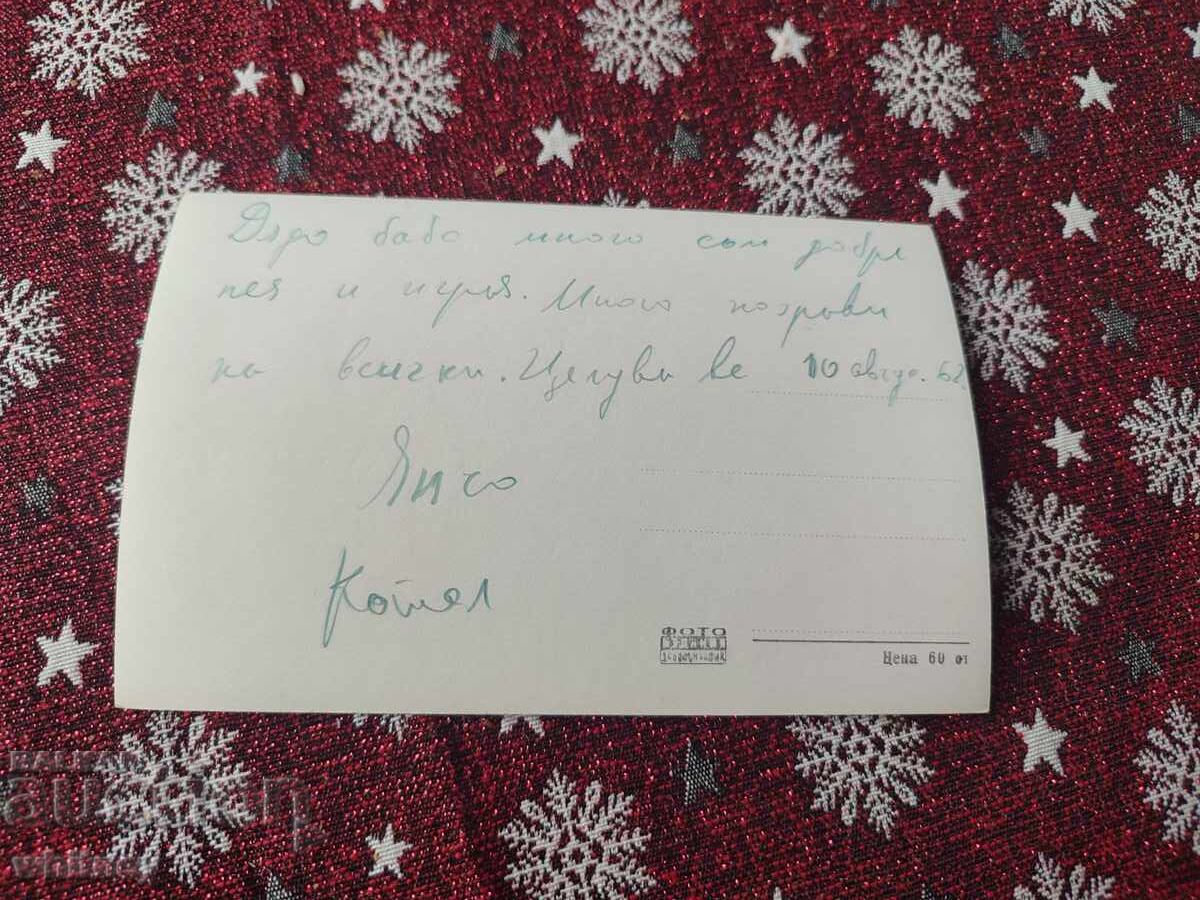 Дядо бабо много съм добре
пея и играя. Много поздрави
на всички. Целува ве 10 авгу. 62
Янчо
Котел
ФОТО
Цена 60 ст
BALKAN
auction
whitney